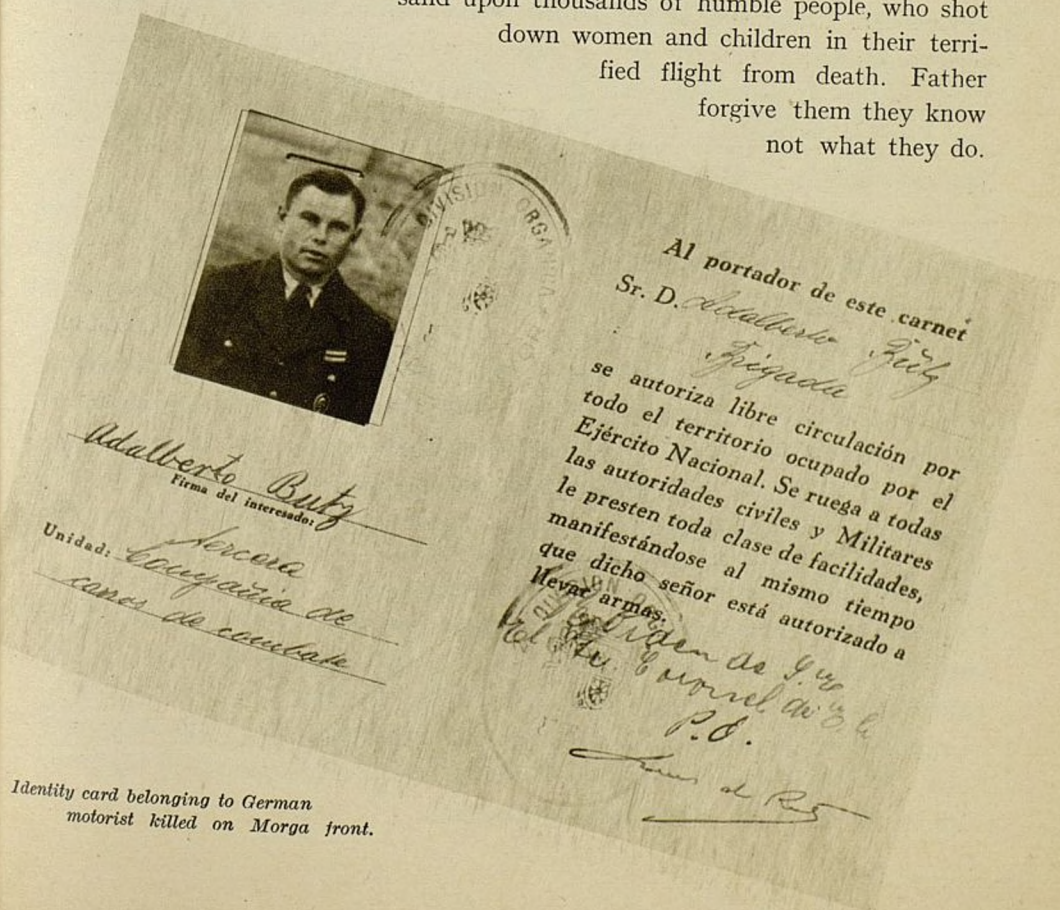 sand upon thousands of humble people, who shot
down women and children in their terri-
fied flight from death. Father
forgive them they know
not what they do.
DIVISION ORGANICA
Adalberto Butz
Firma del interesado:
Unidad: tercera
Compañia de
carros de combate
Al portador de este carnet
Sr. D. Adalberto Butz
Brigada
se autoriza libre circulación por
todo el territorio ocupado por el
Ejército Nacional. Se ruega a todas
las autoridades civiles y Militares
le presten toda clase de facilidades,
manifestándose al mismo tiempo
que dicho señor está autorizado a
llevar armas.
DIVISION ORG
Orden de S.
El Te. Coronel de
P.O.
Identity card belonging to German
motorist killed on Morga front.